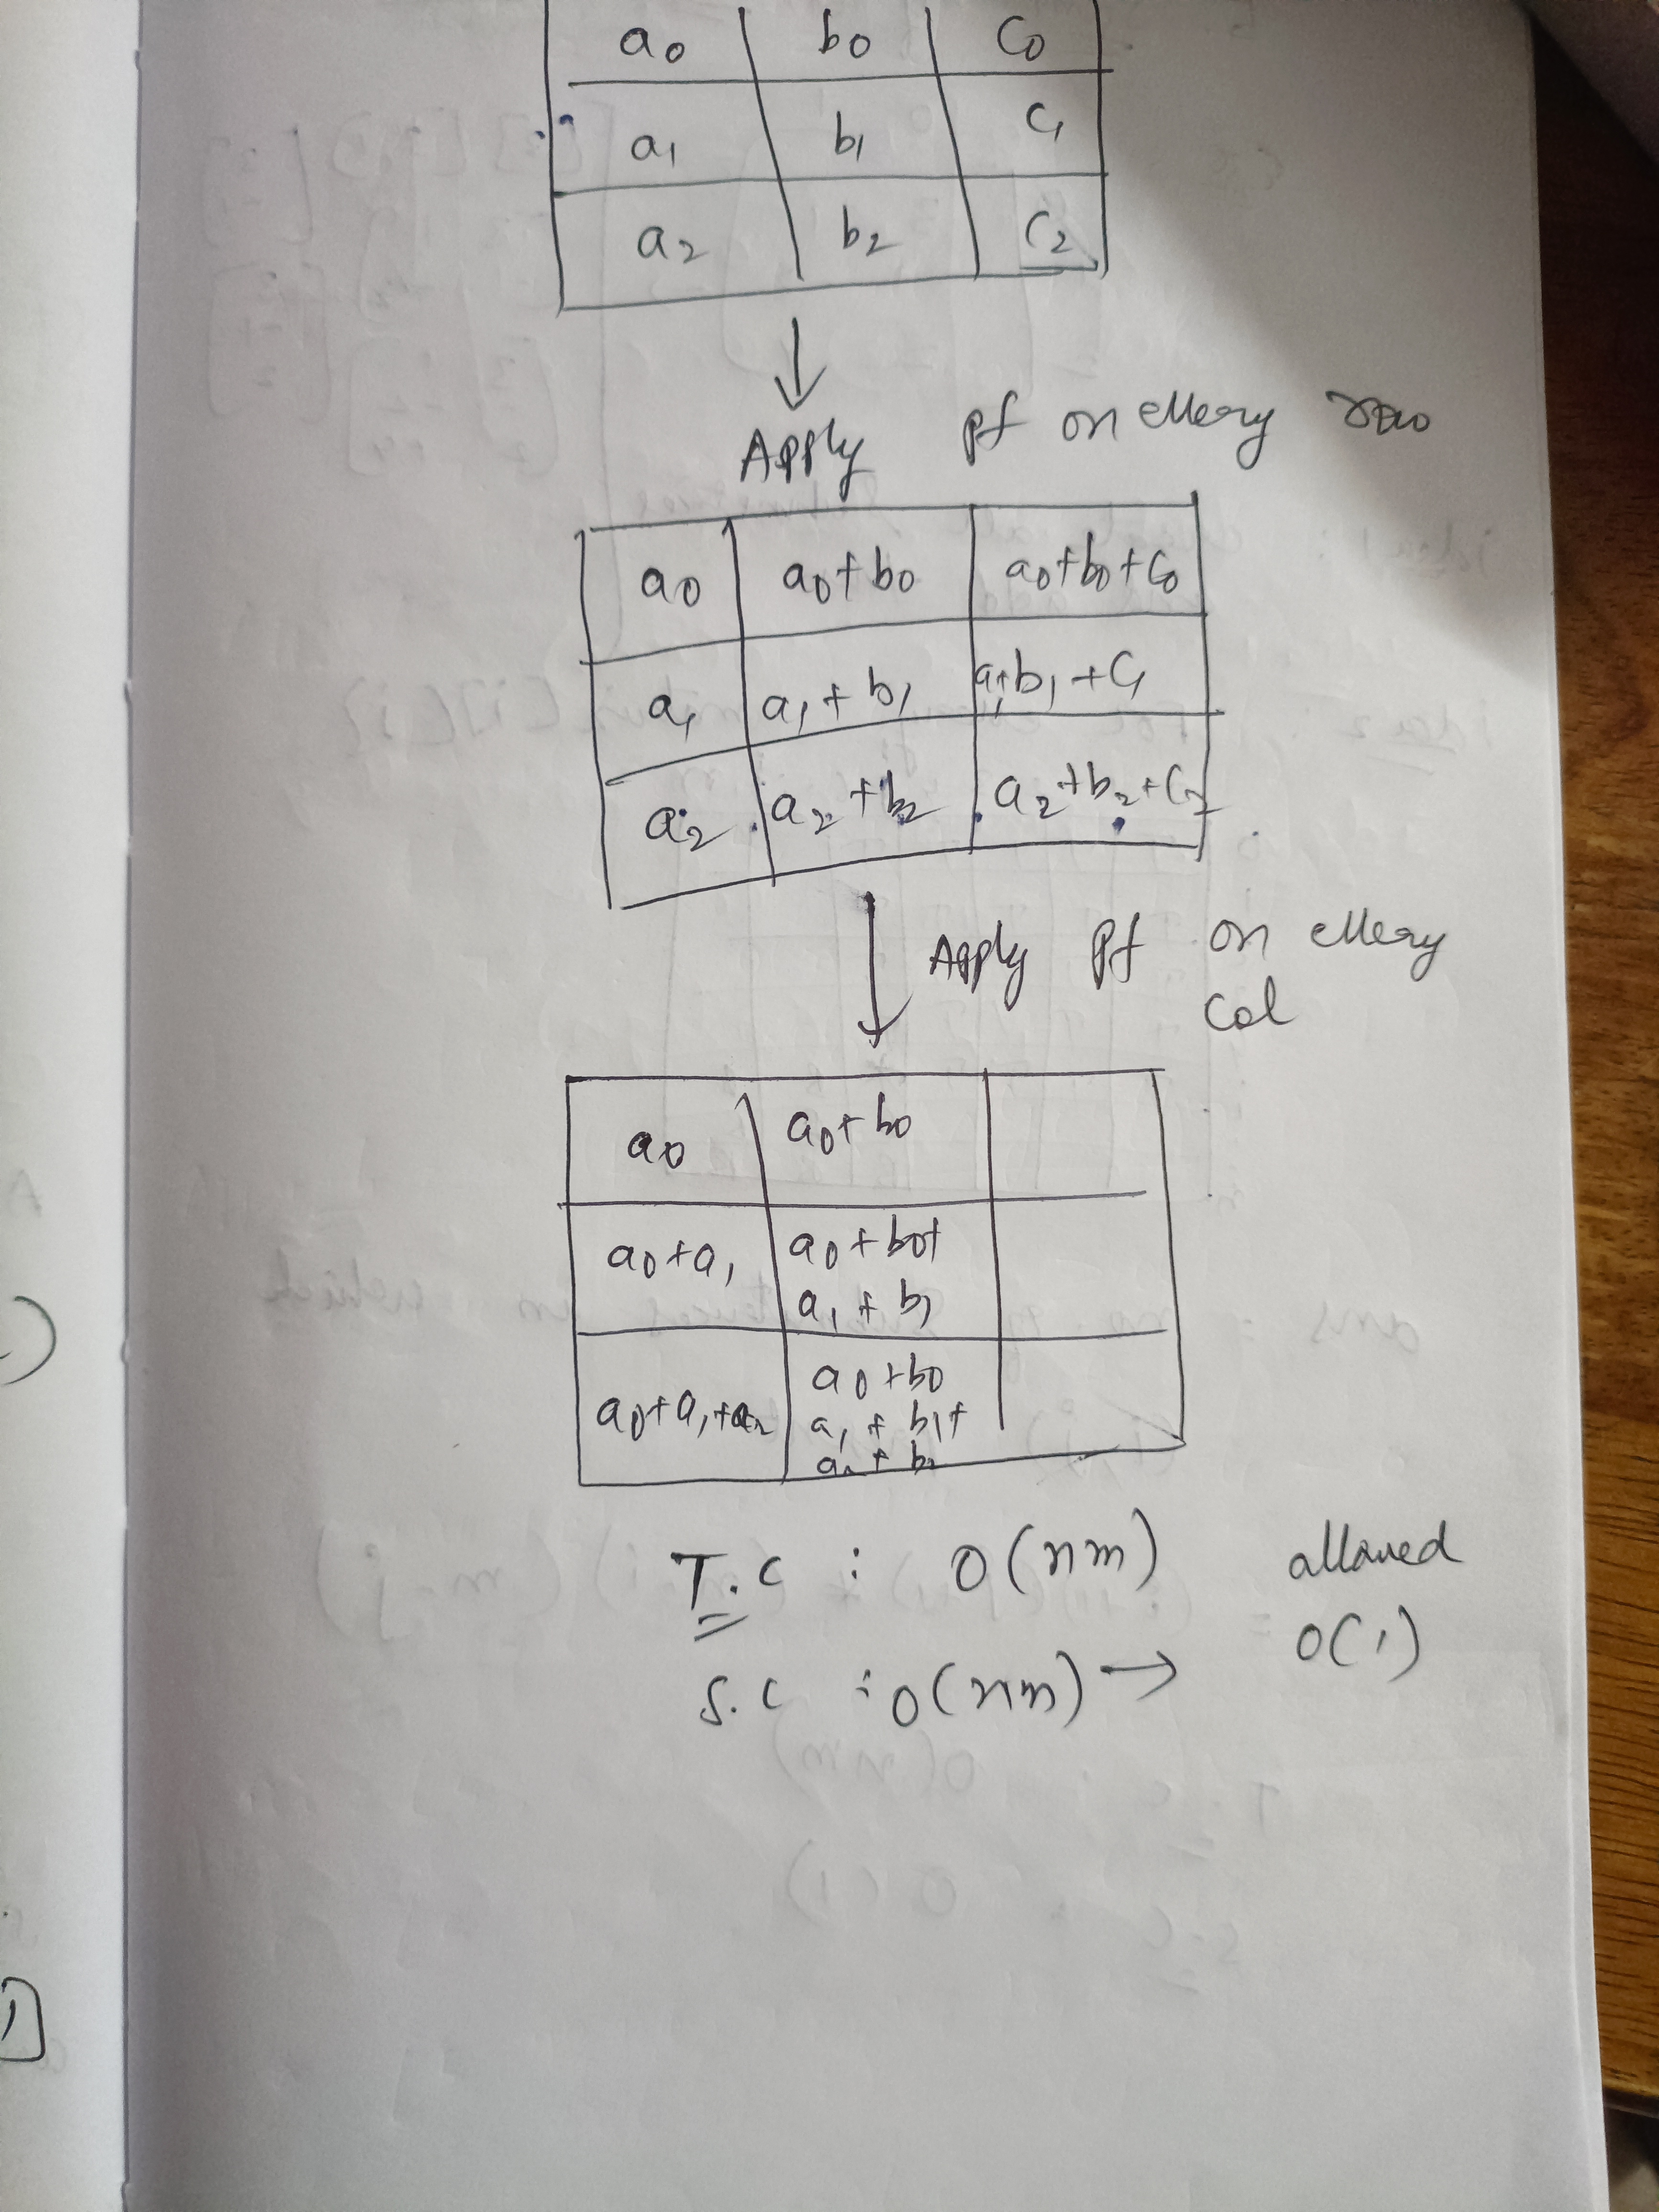 a0 b0 c0
a1 b1 c1
a2 b2 c2
Apply pf on every row
a0 a0+b0 a0+b0+c0
a1 a1+b1 a1+b1+c1
a2 a2+b2 a2+b2+c2
Apply pf on every
col
a0 a0+b0
a0+a1 a0+b0+
a1+b1
a0+a1+a2 a0+b0
a1+b1+
a2+b2
T.C : O(nm) allowed
S.C : O(nm) → O(1)